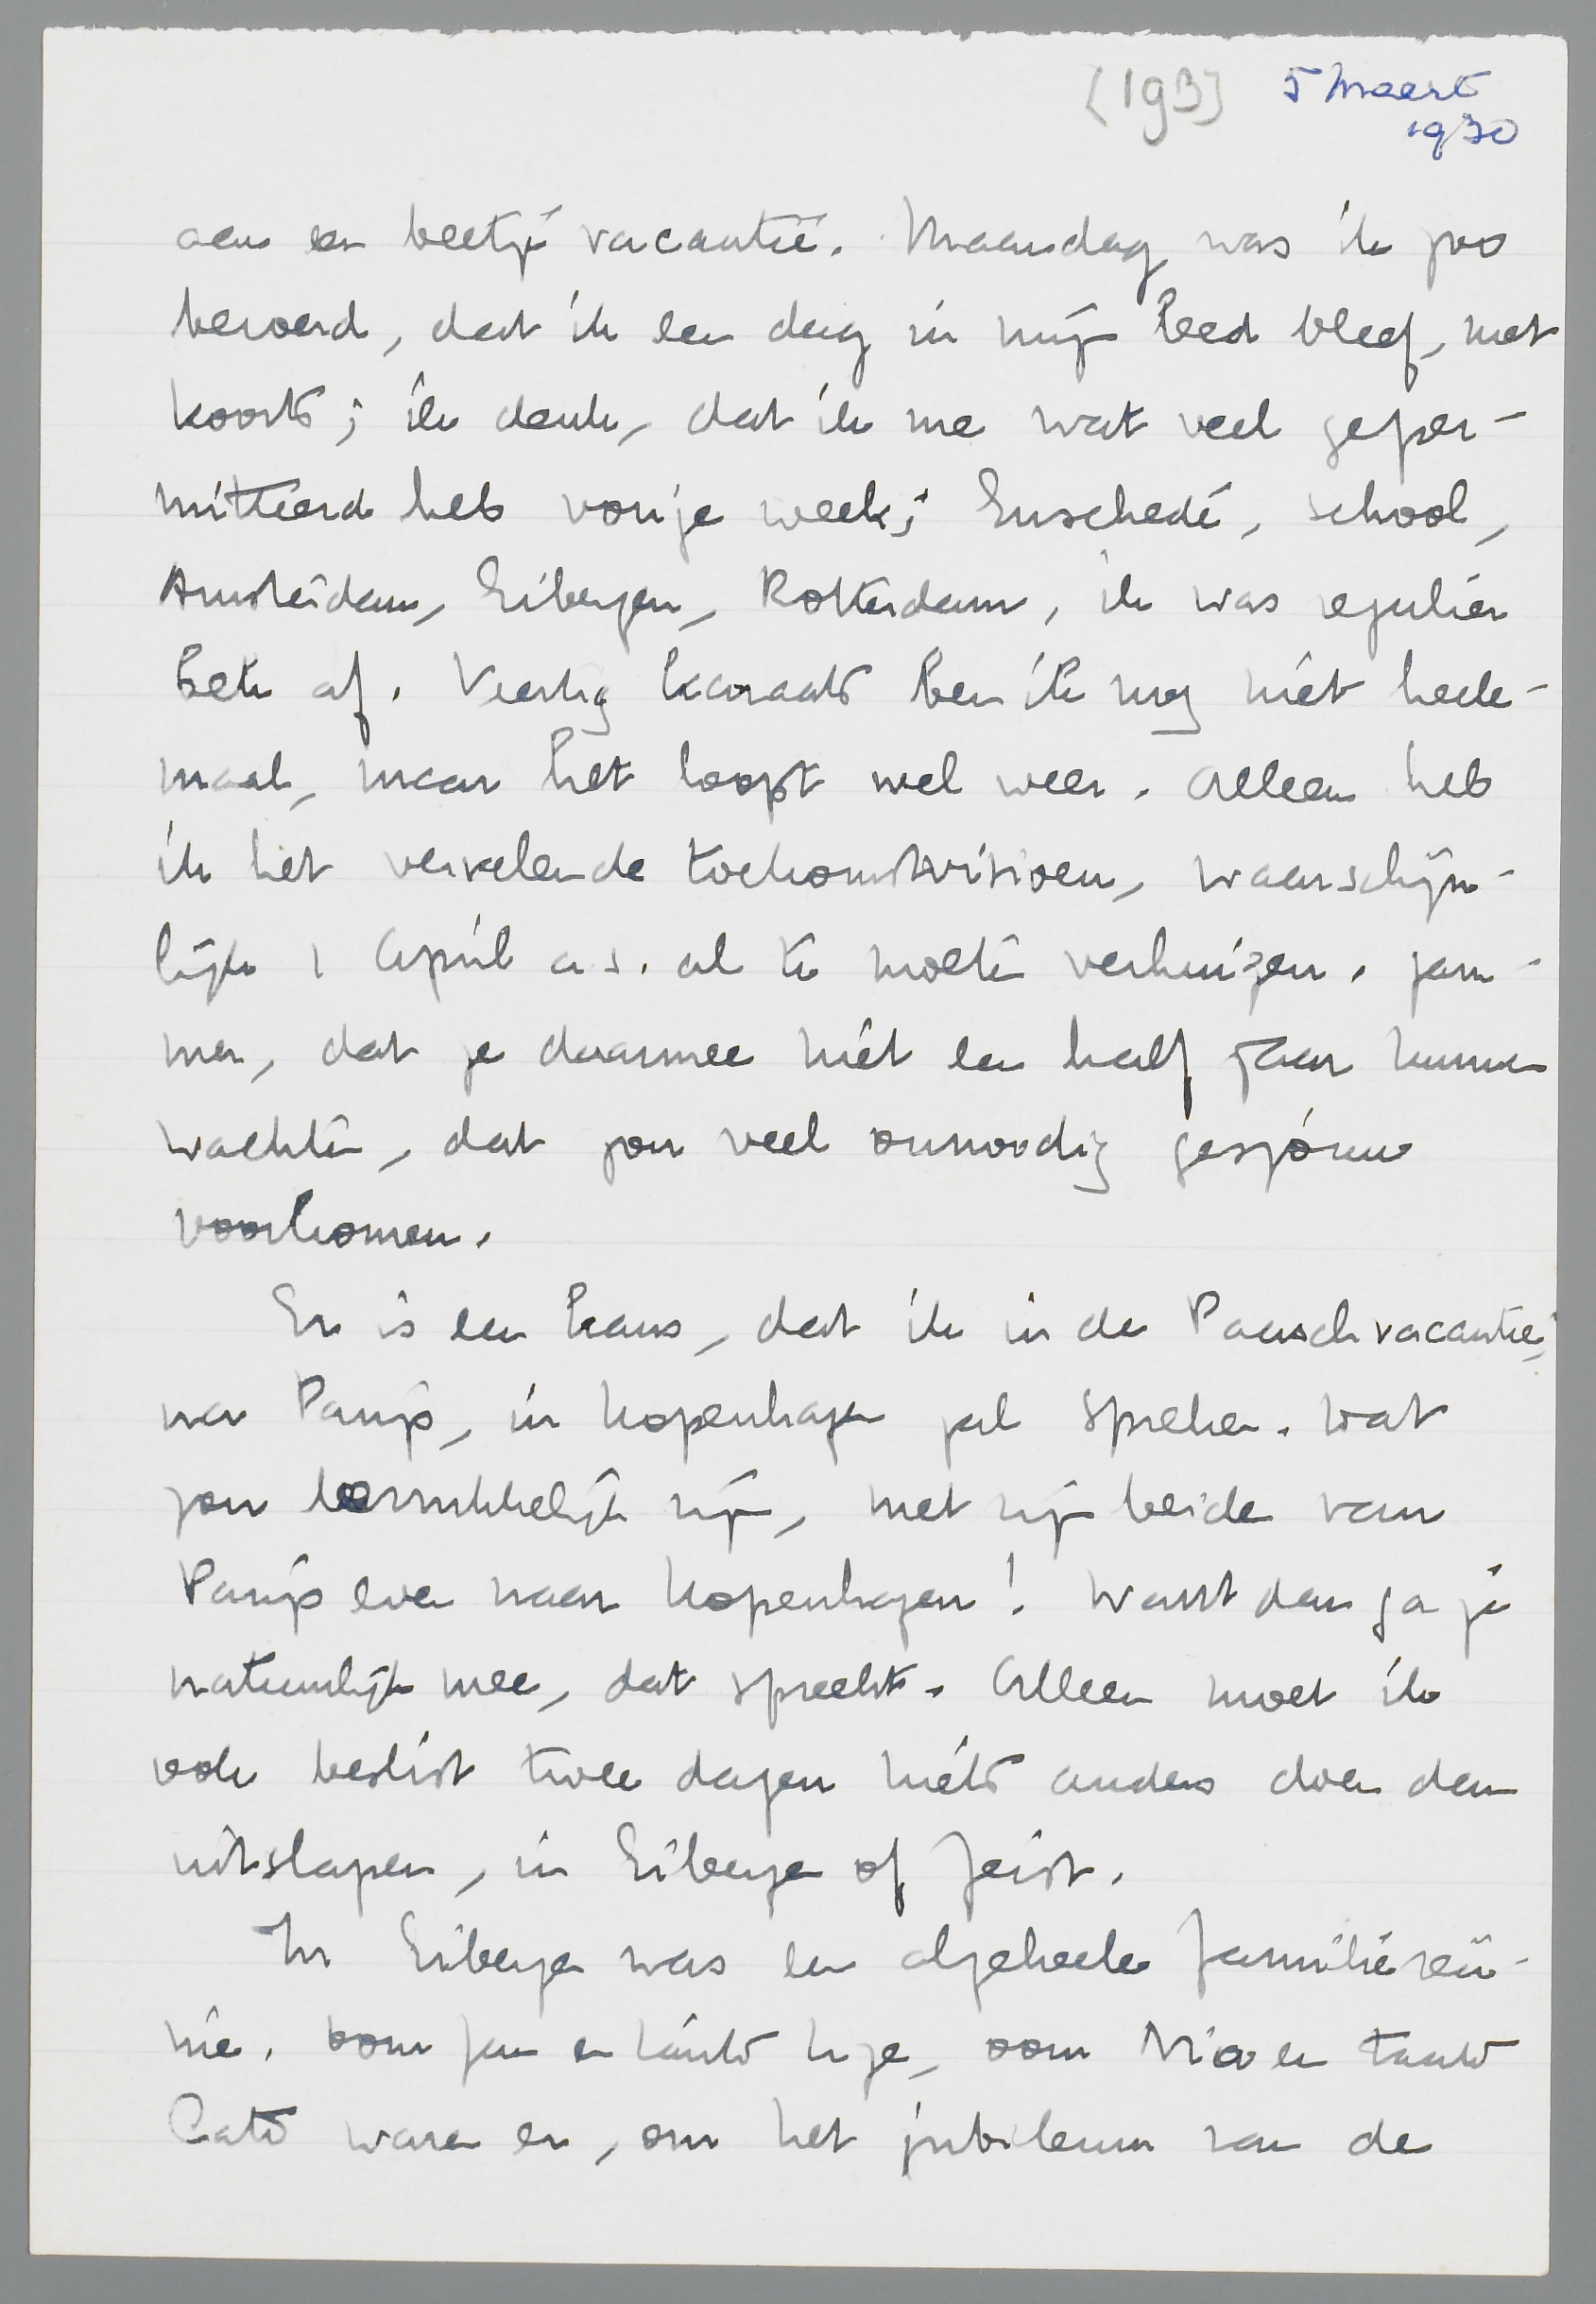 [193] 5 Maart
1930
aan een beetje vacantie. Maandag was ik zoo
beroerd, dat ik een dag in mijn bed bleef, met
koorts; ik denk, dat ik me wat veel geper-
mitteerd heb vorige week; Enschedé, school,
Amsterdam, Eibergen, Rotterdam, ik was regulier
bek af. Veertig karaats ben ik nog niet heele-
maal, maar het loopt wel weer. Alleen heb
ik het vervelende toekomstvisioen, waarschijn-
lijk 1 April a.s. al te moeten verhuizen. Jam-
mer, dat ze daarmee niet een half jaar kunnen
wachten, dat zou veel onnoodig gesjouw
voorkomen.
Er is een kans, dat ik in de Paaschvacantie,
na Parijs, in Kopenhagen zal spreken. Wat
zou dat verrukkelijk zijn, met zijn beide van
Parijs even naar Kopenhagen! Want dan ga je
natuurlijk mee, dat spreekt. Alleen moet ik
ook beslist twee dagen niets anders doen dan
uitslapen, in Eibergen of Zeist.
In Eibergen was een algeheele familiereü-
nie. Oom Jan en tante, oom en tante
Cato waren er, om het jubileum van de